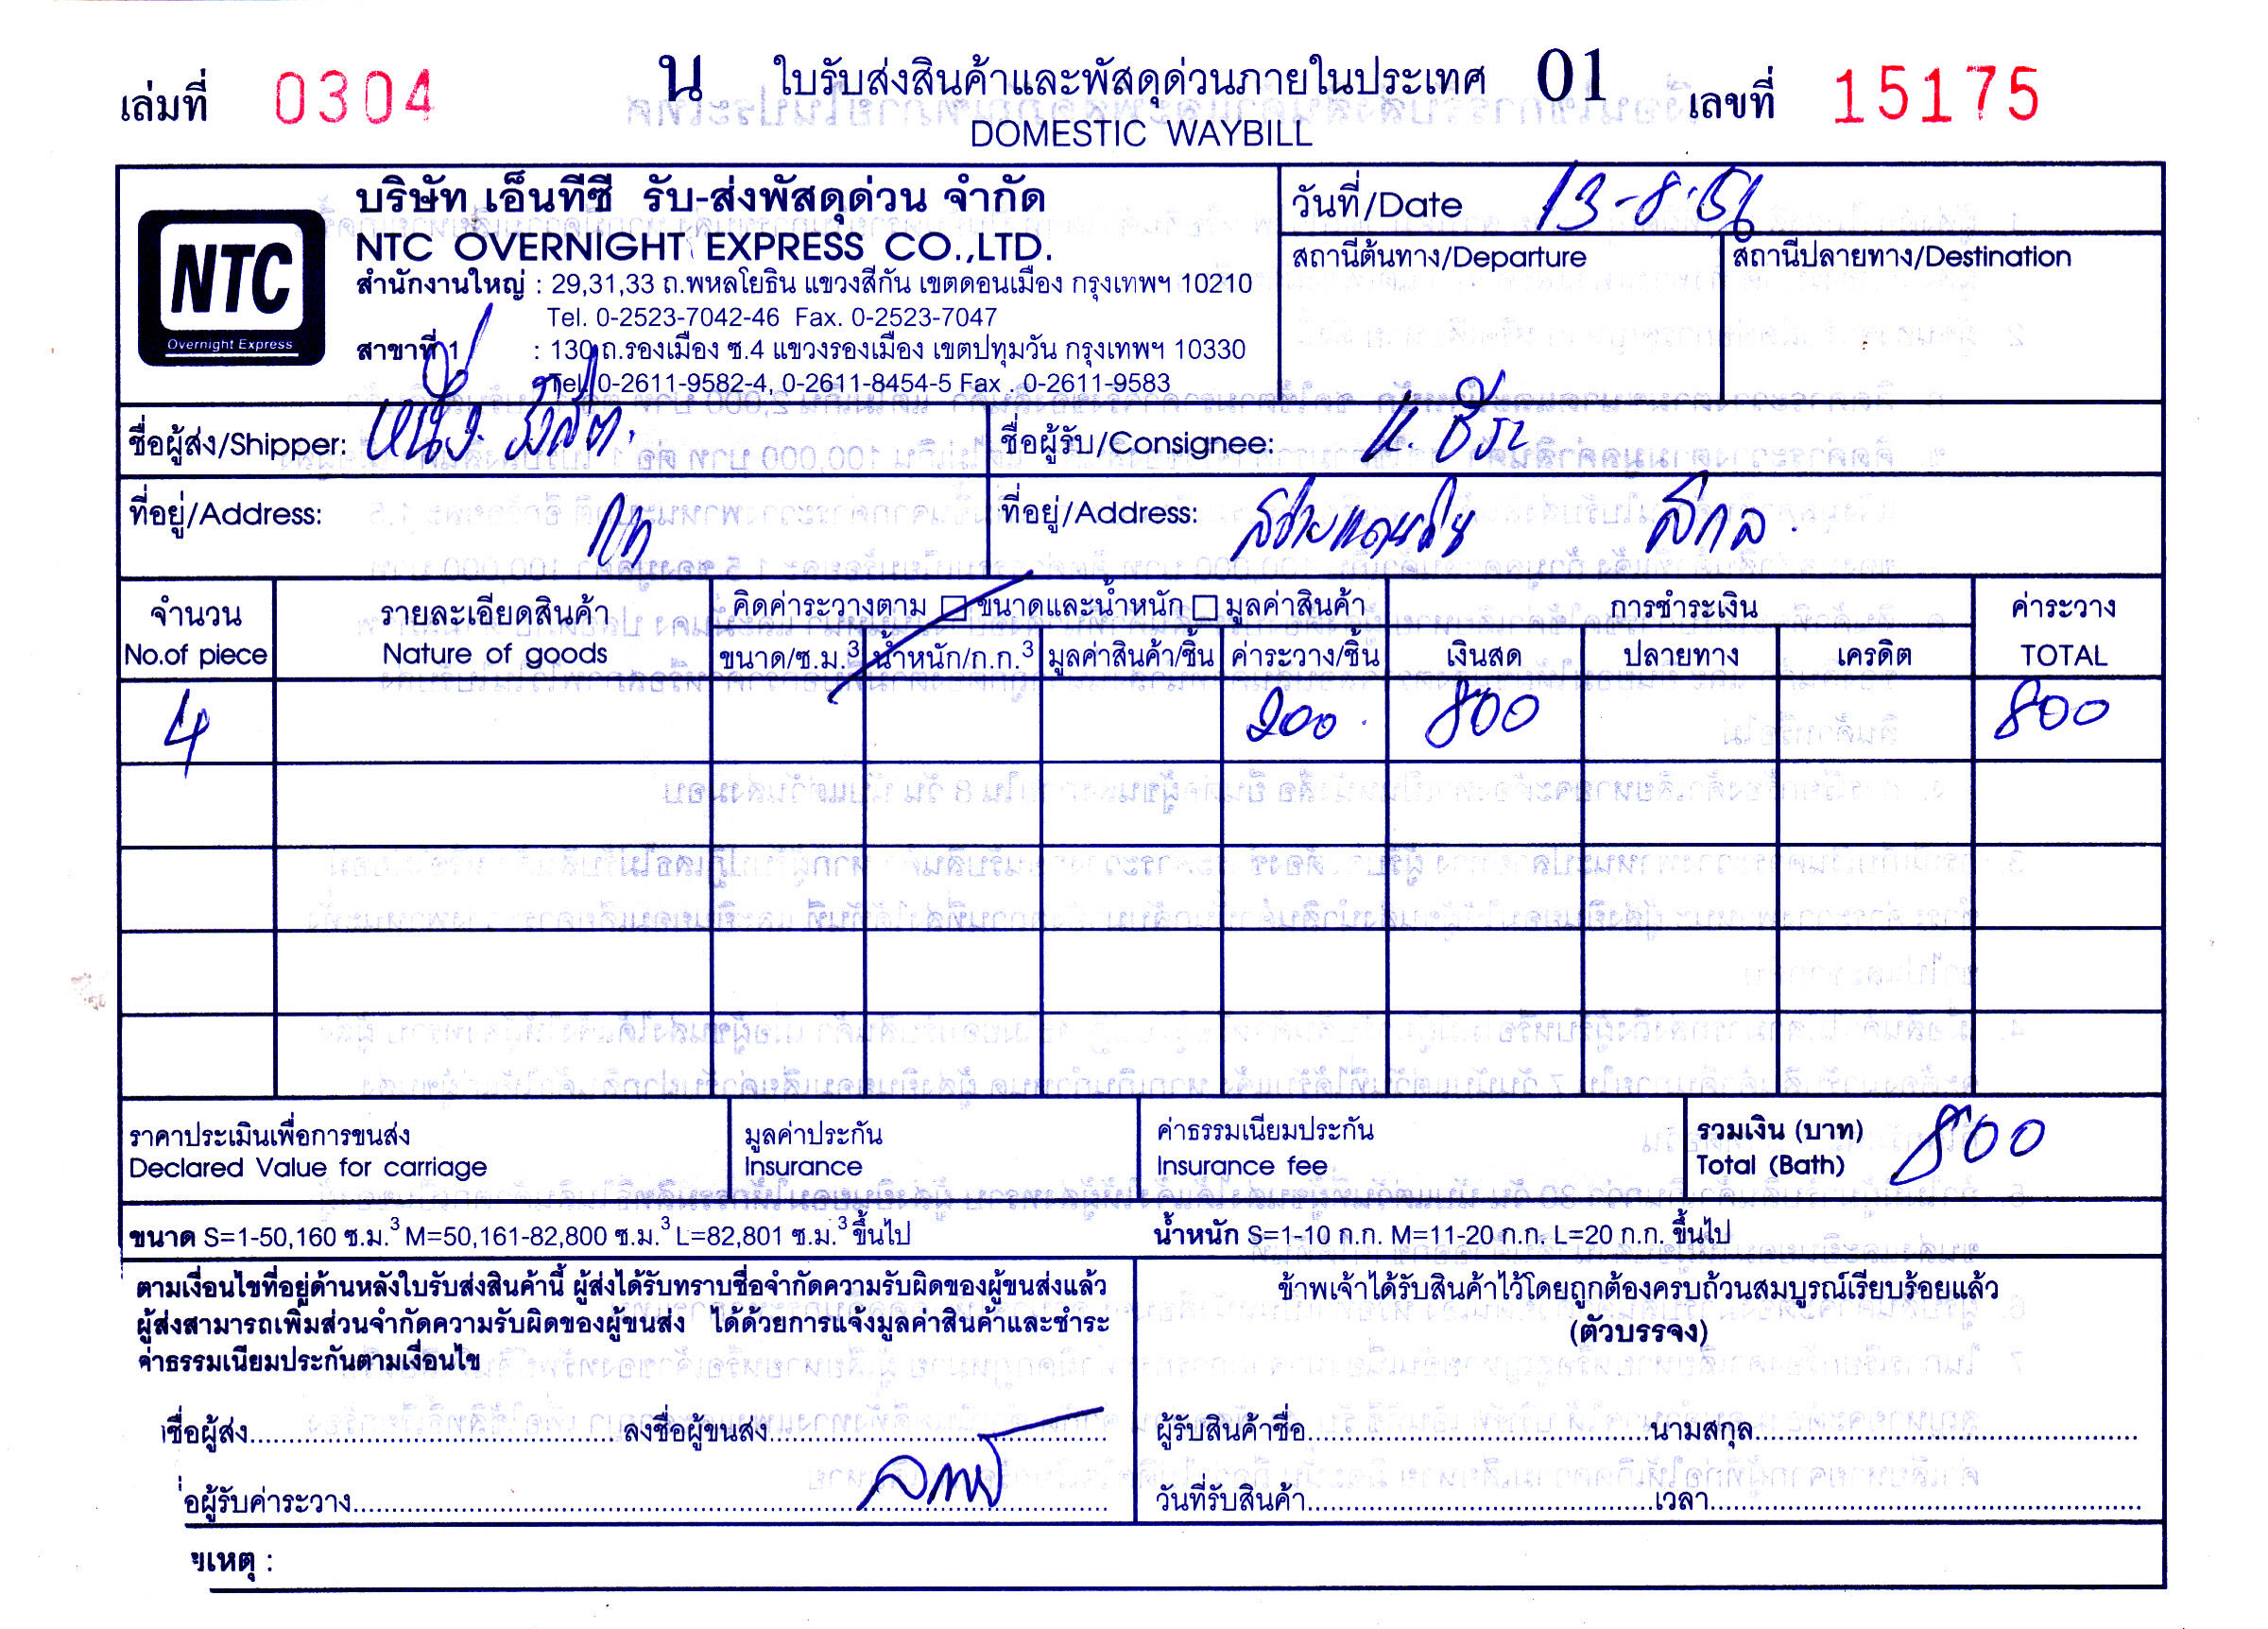 เล่มที่ 0304 น ใบรับส่งสินค้าและพัสดุด่วนภายในประเทศ 01 เลขที่ 15175
DOMESTIC WAYBILL
บริษัท เอ็นทีซี รับ-ส่งพัสดุด่วน จำกัด
NTC OVERNIGHT EXPRESS CO.,LTD.
NTC
Overnight Express
สำนักงานใหญ่ : 29,31,33 ถ.พหลโยธิน แขวงสีกัน เขตดอนเมือง กรุงเทพฯ 10210
Tel. 0-2523-7042-46 Fax. 0-2523-7047
สาขาที่ 1 : 130 ถ.รองเมือง ซ.4 แขวงรองเมือง เขตปทุมวัน กรุงเทพฯ 10330
Tel. 0-2611-9582-4, 0-2611-8454-5 Fax . 0-2611-9583
วันที่/Date 13-8-56
สถานีต้นทาง/Departure สถานีปลายทาง/Destination
ชื่อผู้ส่ง/Shipper: ชื่อผู้รับ/Consignee:
ที่อยู่/Address: ที่อยู่/Address:
จำนวน รายละเอียดสินค้า คิดค่าระวางตาม ขนาดและน้ำหนัก มูลค่าสินค้า การชำระเงิน ค่าระวาง
No.of piece Nature of goods ขนาด/ซ.ม.3 น้ำหนัก/ก.ก.3 มูลค่าสินค้า/ชิ้น ค่าระวาง/ชิ้น เงินสด ปลายทาง เครดิต TOTAL
4 200 800 800
ราคาประเมินเพื่อการขนส่ง มูลค่าประกัน ค่าธรรมเนียมประกัน รวมเงิน (บาท) 800
Declared Value for carriage Insurance Insurance fee Total (Bath)
ขนาด S=1-50,160 ซ.ม.3 M=50,161-82,800 ซ.ม.3 L=82,801 ซ.ม.3 ขึ้นไป น้ำหนัก S=1-10 ก.ก. M=11-20 ก.ก. L=20 ก.ก. ขึ้นไป
ตามเงื่อนไขที่อยู่ด้านหลังใบรับส่งสินค้านี้ ผู้ส่งได้รับทราบชื่อจำกัดความรับผิดของผู้ขนส่งแล้ว
ผู้ส่งสามารถเพิ่มส่วนจำกัดความรับผิดของผู้ขนส่ง ได้ด้วยการแจ้งมูลค่าสินค้าและชำระ
ค่าธรรมเนียมประกันตามเงื่อนไข
ข้าพเจ้าได้รับสินค้าไว้โดยถูกต้องครบถ้วนสมบูรณ์เรียบร้อยแล้ว
(ตัวบรรจง)
ชื่อผู้ส่ง ลงชื่อผู้ขนส่ง ผู้รับสินค้าชื่อ นามสกุล
อผู้รับค่าระวาง วันที่รับสินค้า เวลา
ยเหตุ :